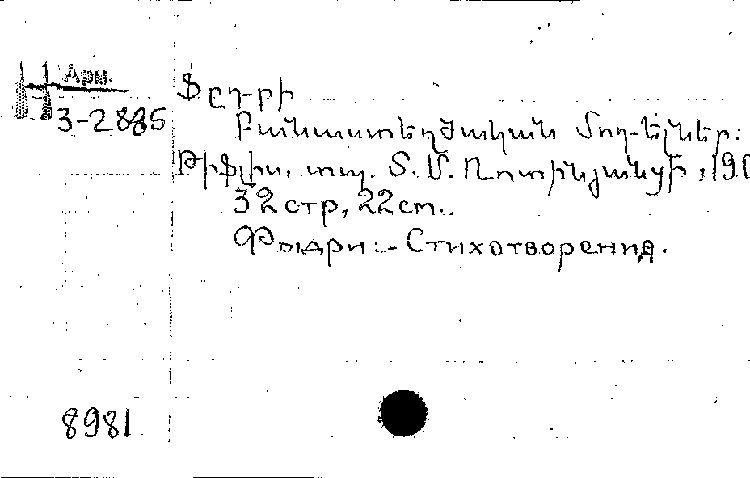 Арм.
3-2885
Ֆըդրի
Բանաստեղծական մոդելներ:
Թիֆլիս, տպ. Տ. Մ. Ռոտինյանցի, 190
32 стр, 22 cm.
Фыдри:- Стихотворения.
8981